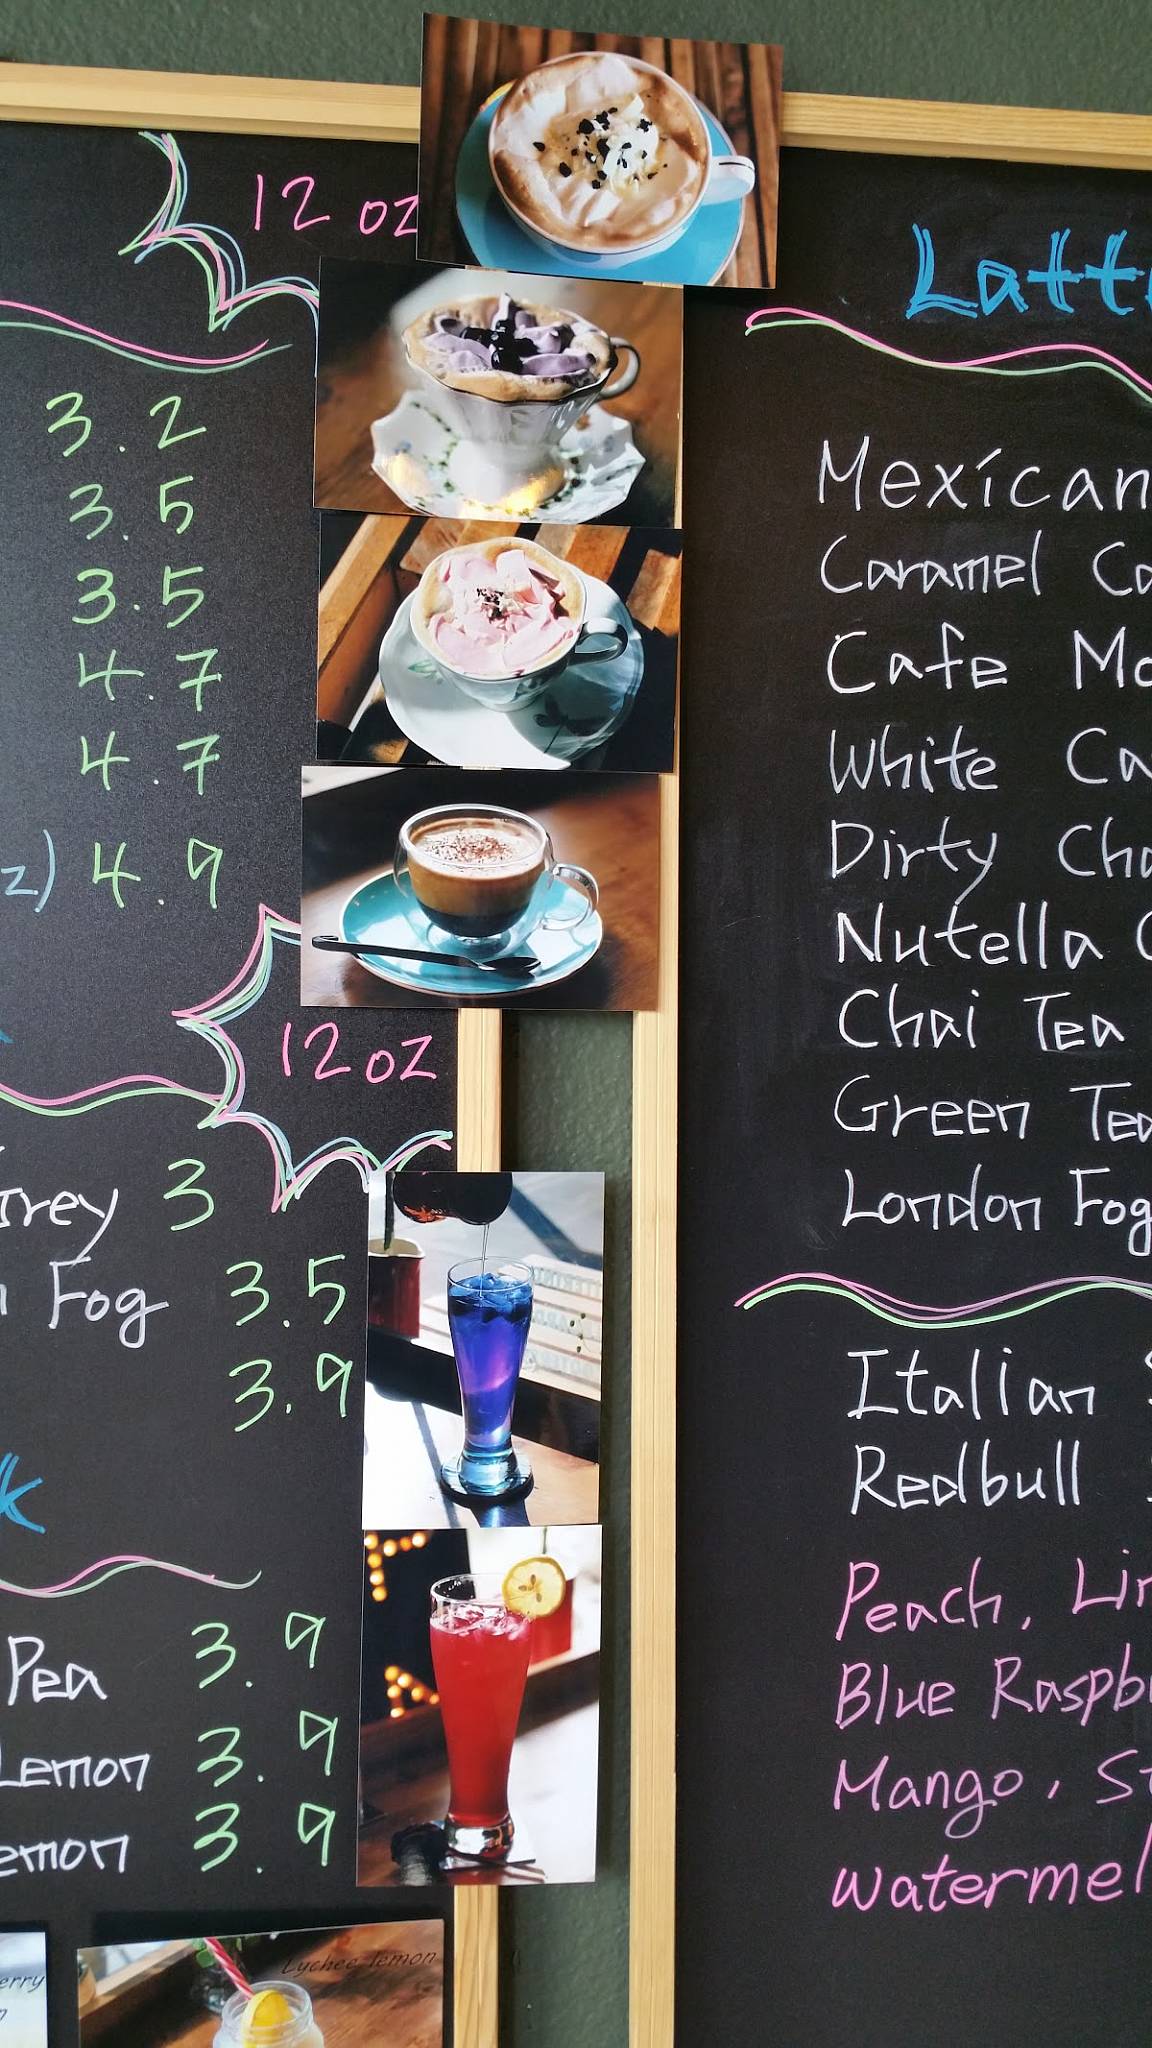 12 oz
3.2
3.5
3.5
4.7
4.7
z) 4.9
12 oz
Grey 3
Fog 3.5
3.9
k
Pea 3.9
Lemon 3.9
emon 3.9
erry
Lychee lemon
Latt
Mexican
Caramel Ca
Cafe Mo
White Ca
Dirty Cha
Nutella C
Chai Tea
Green Tea
London Fog
Italian S
Redbull
Peach, Lim
Blue Raspb
Mango, St
watermel